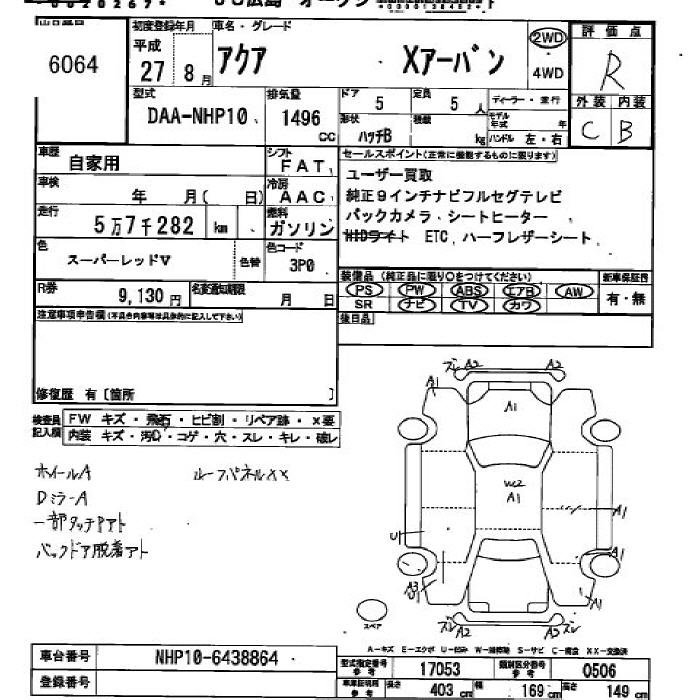 6064
初度登録年月 車名・グレード
平成 27 8月 アクア Xアーバン
2WD
4WD
評価点
R
外装 内装
C B
型式 排気量 ドア 定員 ディーラー・並行
DAA-NHP10 1496 cc 5 5人
形状 積載 kg モデル年式 年
ハッチB ハンドル 左・右
車歴 自家用
シフト FAT
車検 年 月( 日)
冷房 AAC
走行 5万7千282 km
燃料 ガソリン
色 スーパーレッドV 色替
色コード 3P0
R券 9,130円 名変通知期限 月 日
セールスポイント(正常に機能するものに限ります)
ユーザー買取
純正9インチナビフルセグテレビ
バックカメラ、シートヒーター
HIDライト ETC、ハーフレザーシート
装備品(純正品に限り○をつけてください) 新車保証書
PS PW ABS エアB AW 有・無
SR ナビ TV カワ
後日品
注意事項申告欄(不具合内容等は具体的に記入して下さい)
修復歴 有〔箇所 〕
検査員記入欄
FW キズ・飛石・ヒビ割・リペア跡・X要
内装 キズ・汚れ・コゲ・穴・スレ・キレ・破レ
ホイールA ルーフパネルXX
DミラーA
一部タッチPアト
バックドア脱着アト
ズレ A2 A2
A1 A1
W2
A1
A1
U1 A1
A3
A1
ズレ A2 A2 ズレ
スペア
A-キズ E-エクボ U-凹み W-補修跡 S-サビ C-腐食 XX-交換済
車台番号 NHP10-6438864
登録番号
型式指定番号 参考 17053 類別区分番号 参考 0506
車車証明用 参考 長さ 403 cm 幅 169 cm 高さ 149 cm